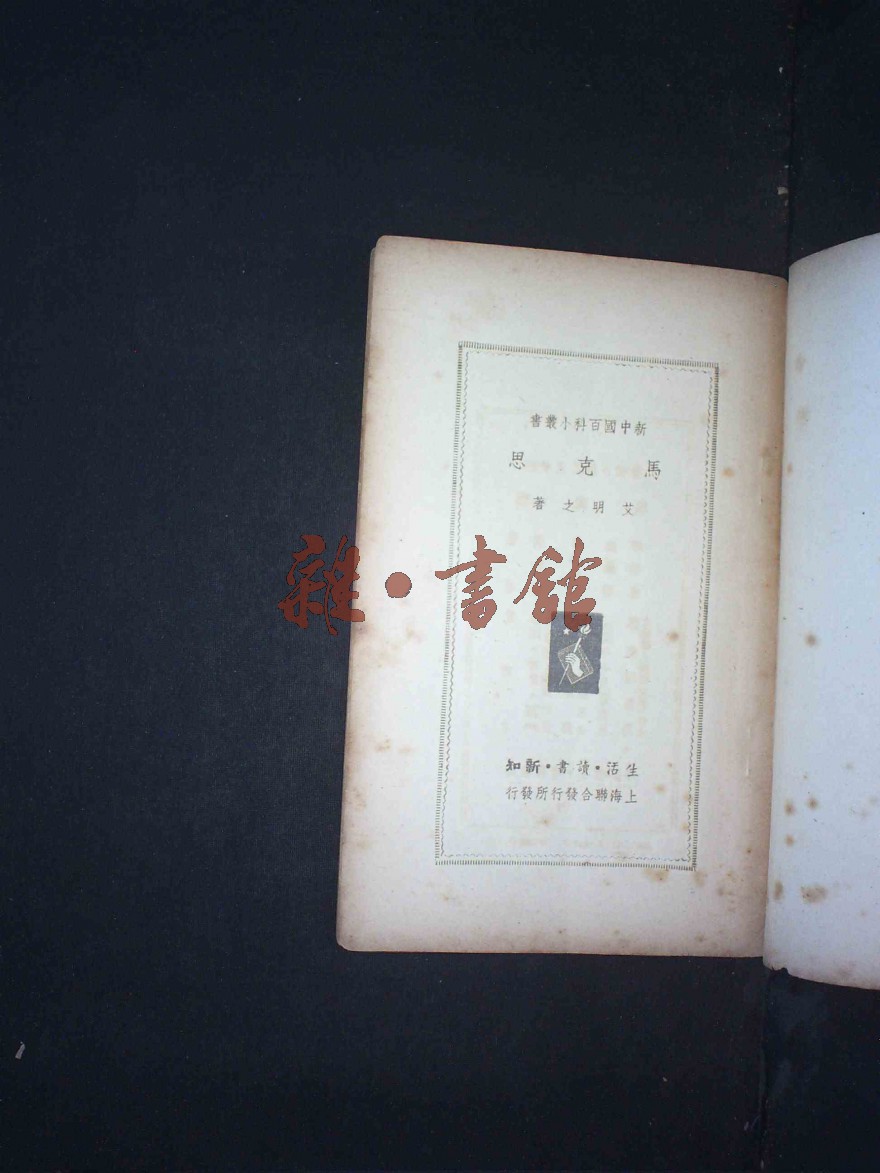 新中國百科小叢書
馬克思
艾明之著
雜·書館
生活·讀書·新知
上海聯合發行所發行